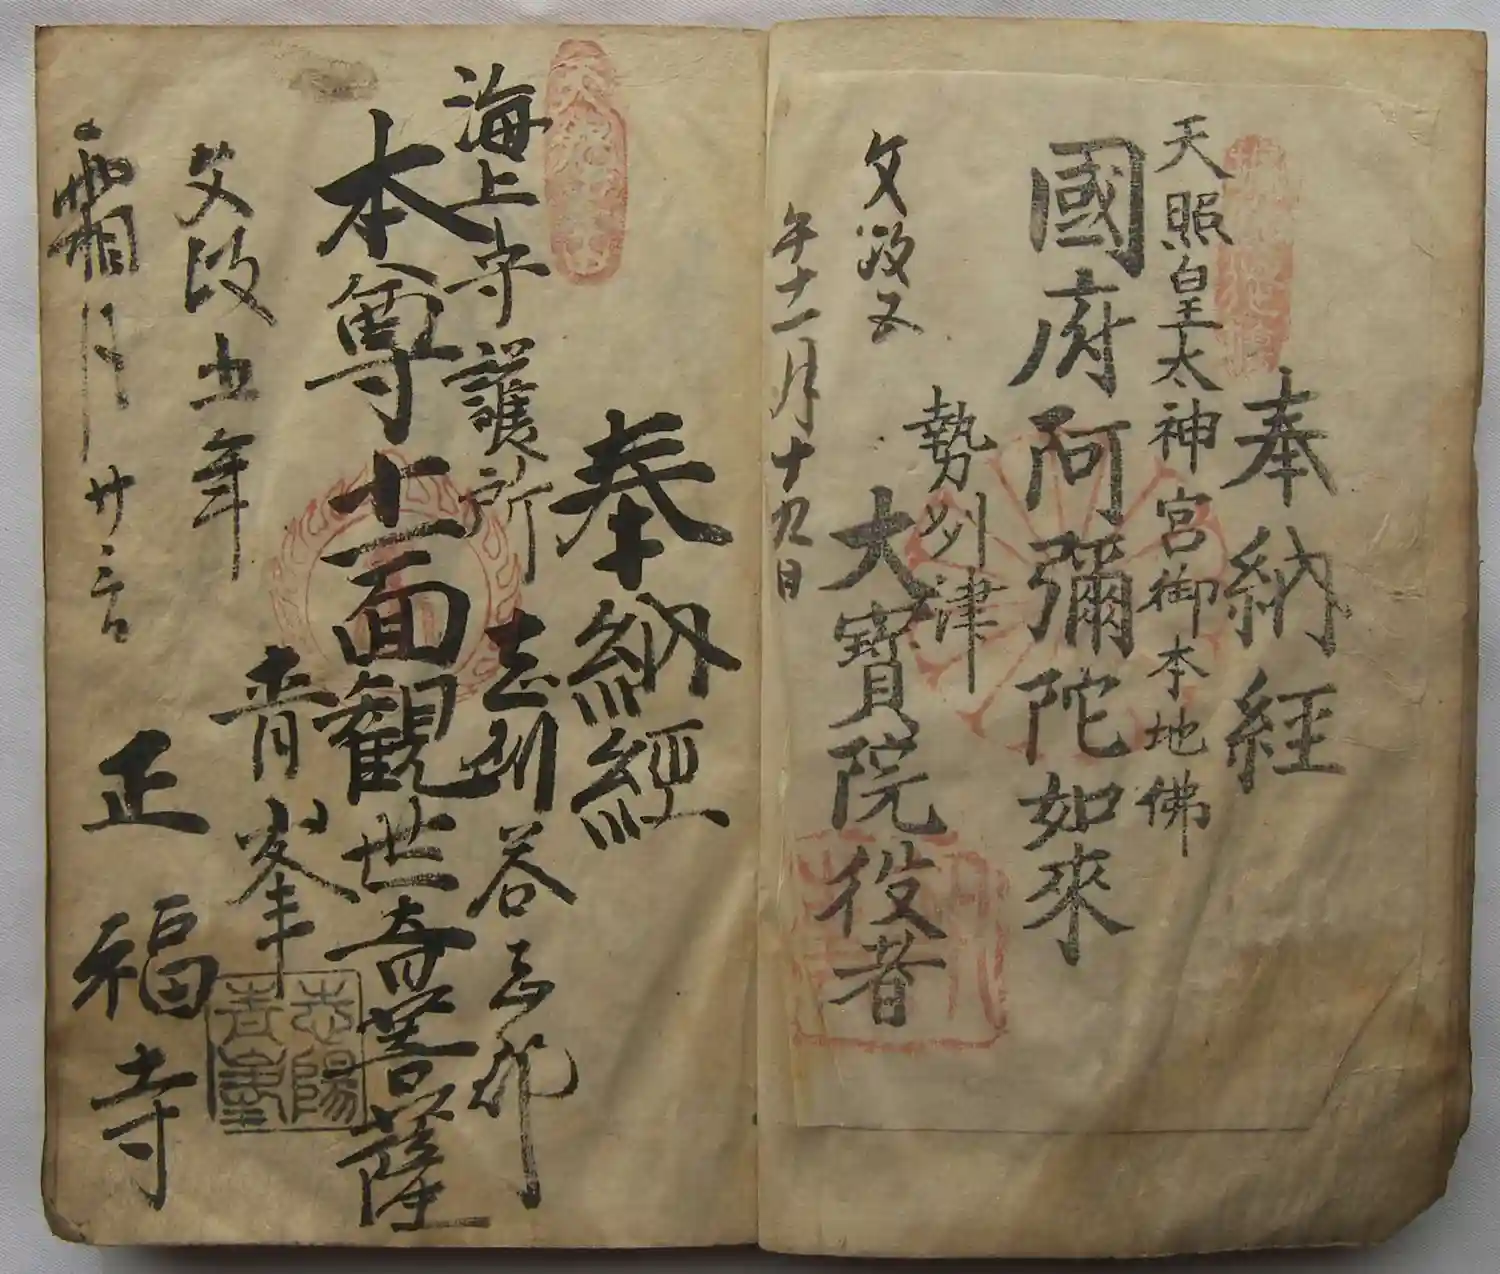 奉納経
天照皇太神宮御本地佛
國府阿彌陀如來
勢州津
大寶院役者
文政五
年十一月十九日
奉納經
海上守護所
志州荅志郡
本尊十一面観世音菩薩
青峯
文政五年
霜月廿
正福寺